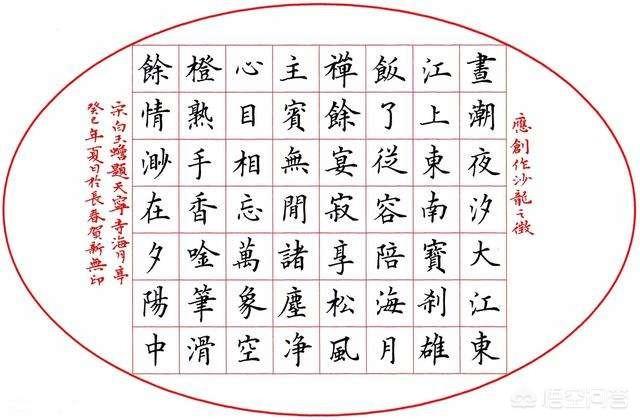 應創作沙龍之徵
晝潮夜汐大江東
江上東南寶刹雄
飯了從容陪海月
禪餘宴寂享松風
主賓無閒諸塵净
心目相忘萬象空
橙熟手香唫筆滑
餘情渺在夕陽中
宋白玉蟾題天寧寺海月亭
癸巳年夏日於長春賀新無印
悟空问答